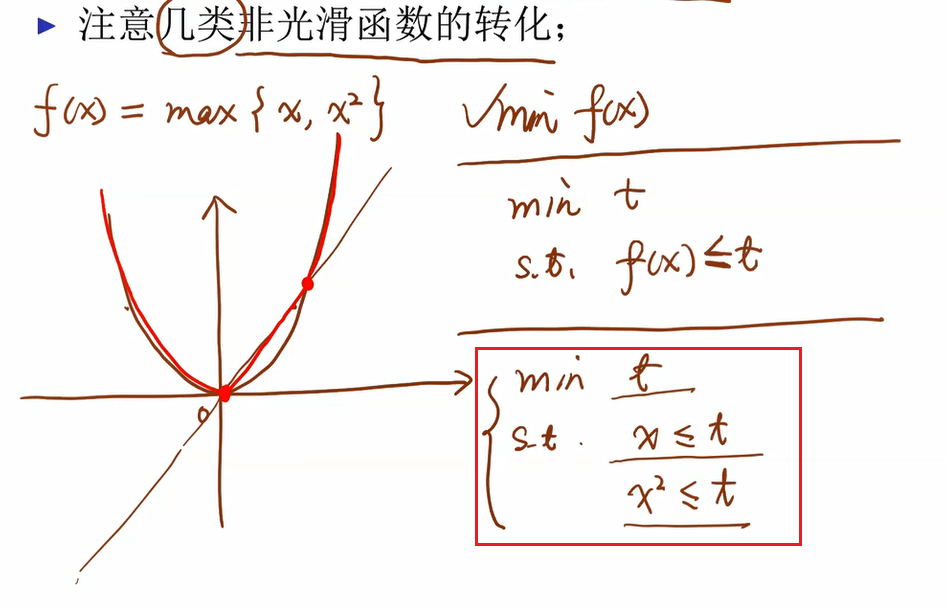 ▶ 注意几类非光滑函数的转化；
f(x) = max { x, x² }
√min f(x)
min t
s.t. f(x) ≤ t
min t
s.t. x ≤ t
x² ≤ t
0